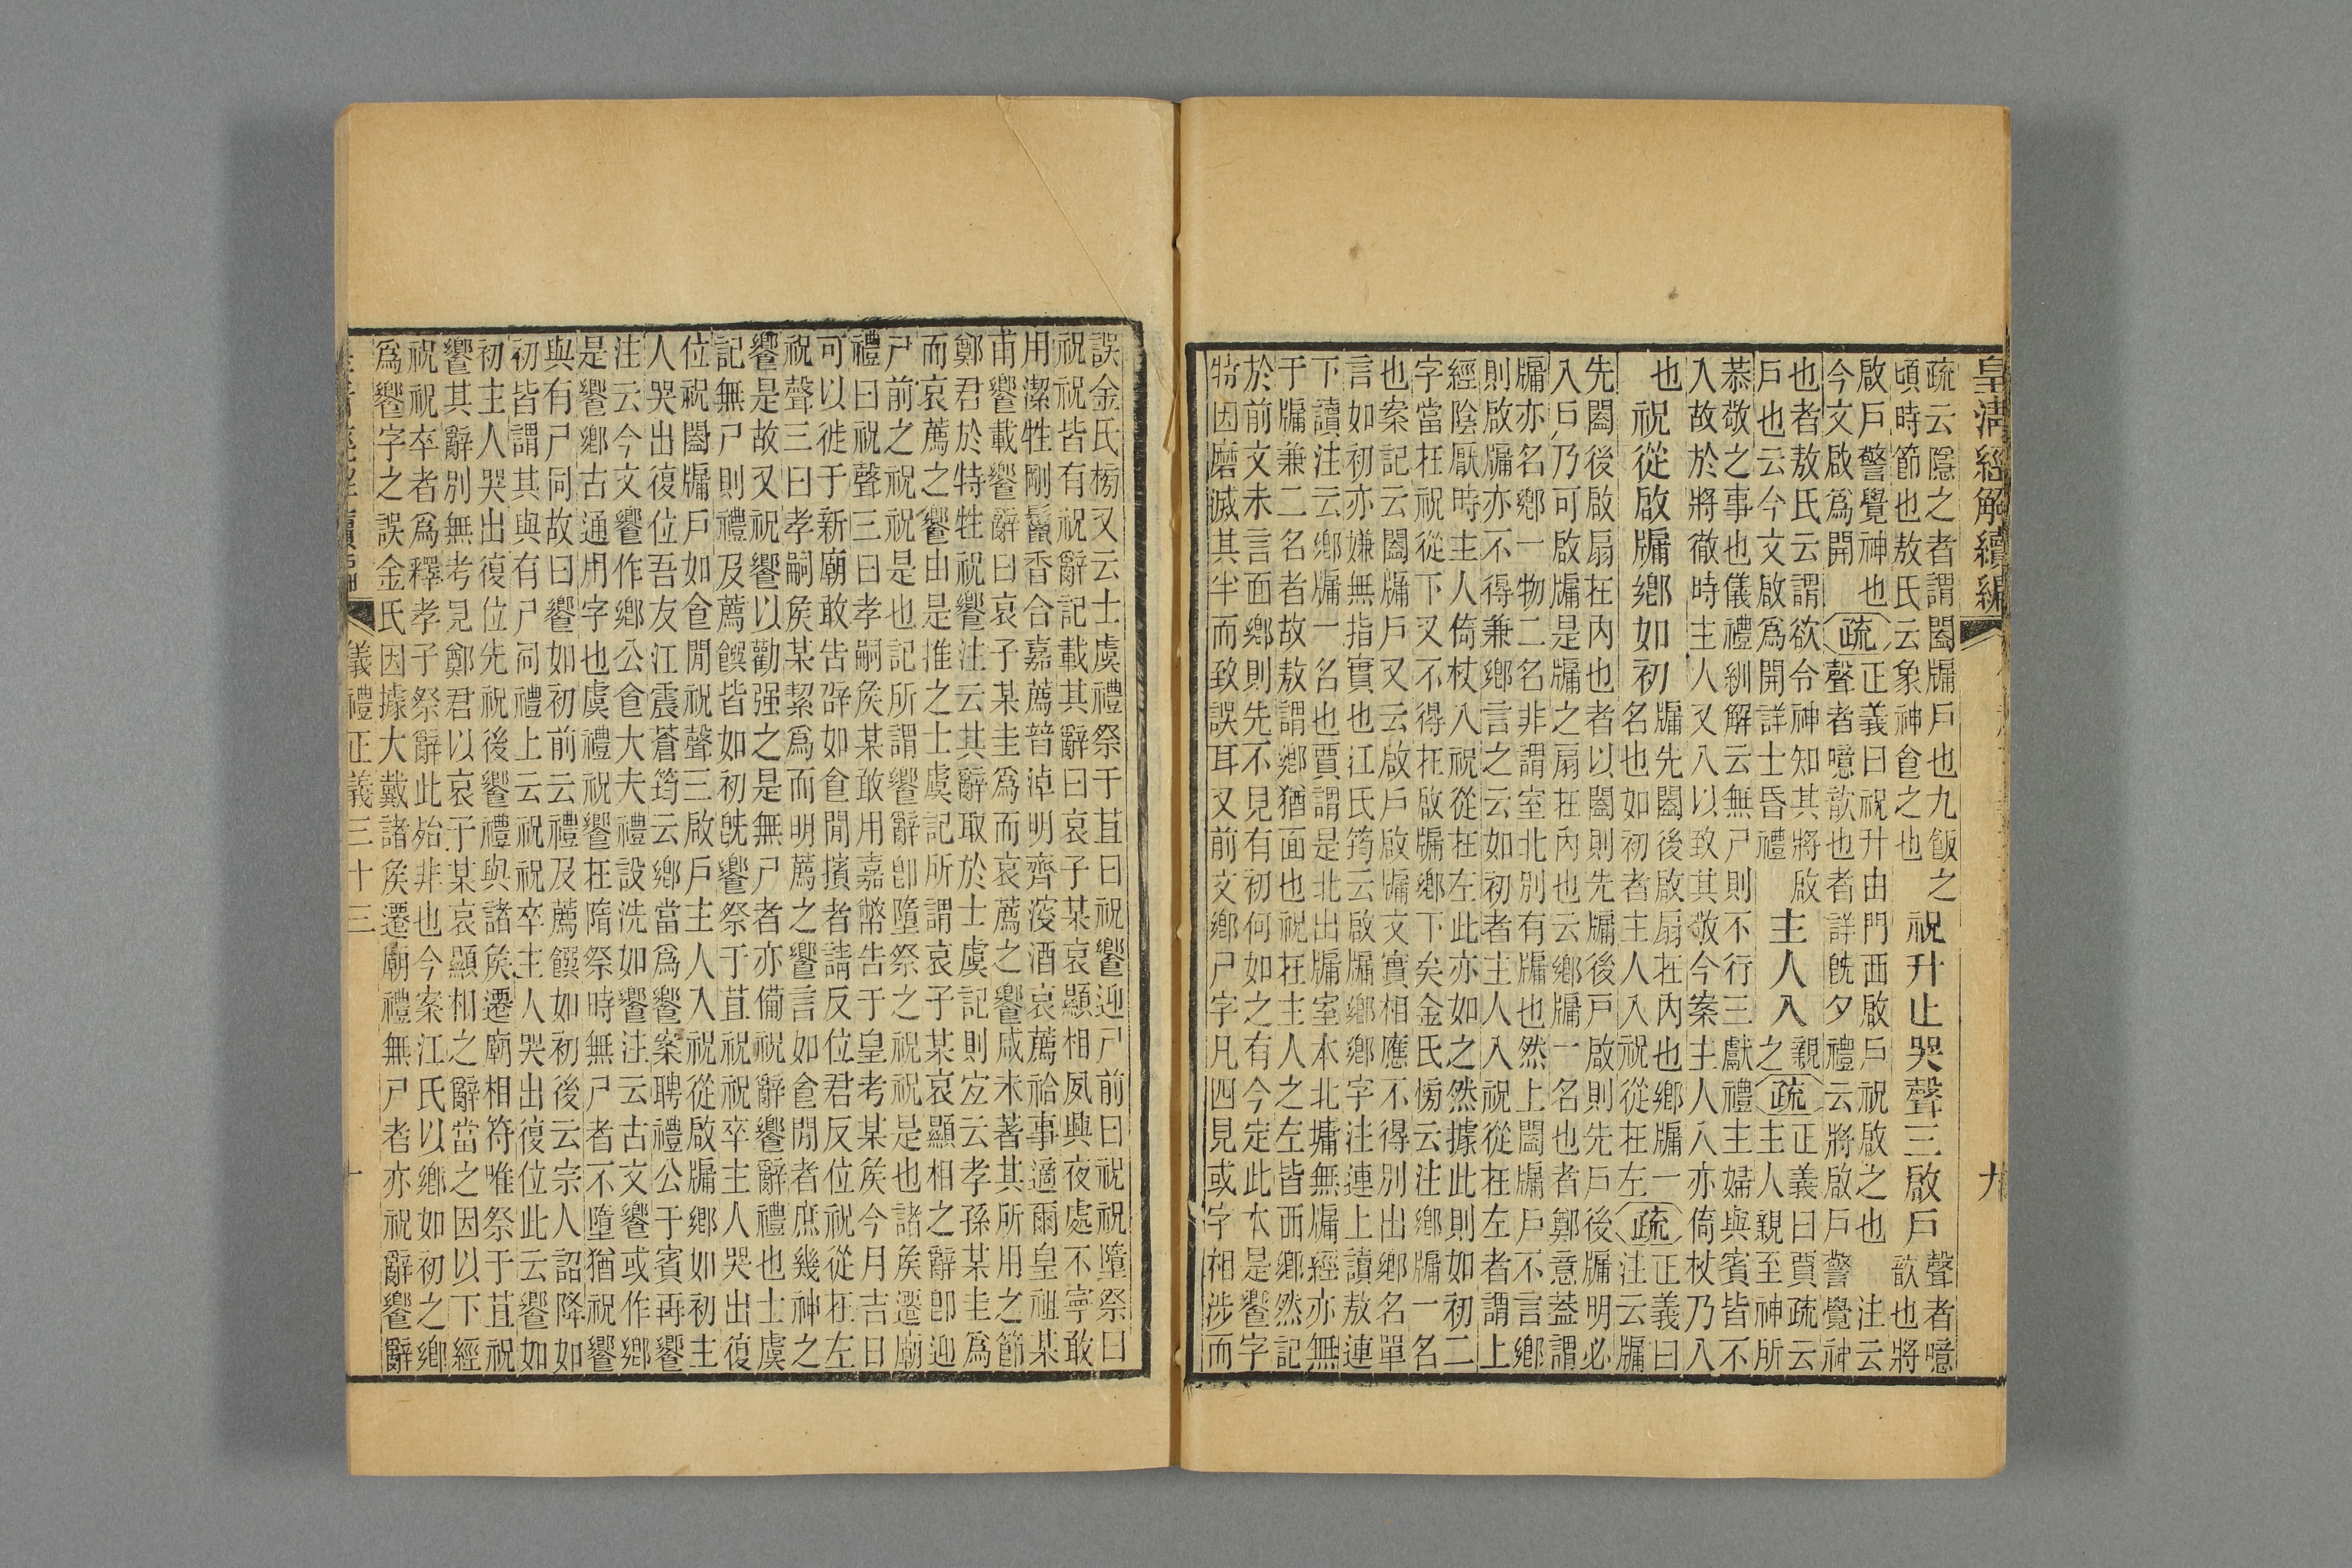 皇淸經解續編
九
疏云隱之者謂闔牖戶也九飯之
頃時節也敖氏云象神食之也
祝升止哭聲三啟戶
聲者噫
歆也將
啟戶警覺神也
今文啟爲開
疏
正義曰祝升由門西啟戶祝啟之也 注云
聲者噫歆也者詳旣夕禮云將啟戶警覺神
也者敖氏云謂欲令神知其將啟
戶也云今文啟爲開詳士昏禮
主人入
親
之
疏
正義曰賈疏云
主人親至神所
恭敬之事也儀禮紃解云無尸則不行三獻禮主婦與賓皆不
入故於將徹時主人又入以致其敬今案主人入亦倚杖乃入
也
祝從啟牖鄉如初
牖先闔後啟扇在內也鄉牖一
名也如初者主人入祝從在左
疏
正義曰
注云牖
先闔後啟扇在內也者以闔則先牖後戶啟則先戶後牖明必
入戶乃可啟牖是牖之扇在內也云鄉牖一名也者鄭意蓋謂
牖亦名鄉一物二名非謂室北別有牖也然上闔牖戶不言鄉
則啟牖亦不得兼鄉言之云如初者主人入祝從在左者謂上
經陰厭時主人倚杖入祝從在左此亦如之然據此則如初二
字當在祝從下又不得在啟牖鄉下矣金氏榜云注鄉牖一名
也案記云闔牖戶又云啟戶啟牖文實相應不得別出鄉名單
言如初亦嫌無指實也江氏筠云啟牖鄉鄉字注連上讀敖連
下讀注云鄉牖一名也賈謂是北出牖室本北墉無牖經亦無
于牖兼二名者故敖謂鄉猶面也祝在主人之左皆西鄉然記
於前文未言面鄉則先不見有初何如之有今定此本是饗字
特因磨滅其半而致誤耳又前文鄉尸字凡四見或字相涉而
誤金氏榜又云士虞禮祭于苴曰祝饗迎尸前曰祝祝墮祭曰
祝祝皆有祝辭記載其辭曰哀子某哀顯相夙興夜處不寧敢
用潔牲剛鬣香合嘉薦普淖明齊溲酒哀薦祫事適爾皇祖某
甫饗載饗辭曰哀子某圭爲而哀薦之饗咸未著其所用之節
鄭君於特牲祝饗注云其辭取於士虞記則宜云孝孫某圭爲
而哀薦之饗由是推之士虞記所謂哀子某哀顯相之辭卽迎
尸前之祝祝是也記所謂饗辭卽墮祭之祝祝是也諸矦遷廟
禮曰祝聲三曰孝嗣矦某敢用嘉幣告于皇考某矦今月吉日
可以徙于新廟敢告辟如食閒擯者請反位君反位祝從在左
祝聲三曰孝嗣矦某絜爲而明薦之饗言如食閒者庶幾神之
饗是故又祝饗以勸强之是無尸者亦備祝辭饗辭禮也士虞
記無尸則禮及薦饌皆如初旣饗祭于苴祝祝卒主人哭出復
位祝闔牖戶如食閒祝聲三啟戶主人入祝從啟牖鄉如初主
人哭出復位吾友江震蒼筠云鄉當爲饗案聘禮公于賓再饗
注云今文饗作鄉公食大夫禮設洗如饗注云古文饗或作鄉
是饗鄉古通用字也虞禮祝饗在隋祭時無尸者不墮猶祝饗
與有尸同故曰饗如初前云禮及薦饌如初後云宗人詔降如
初皆謂其與有尸同禮上云祝祝卒主人哭出復位此云饗如
初主人哭出復位先祝後饗禮與諸矦遷廟相符唯祭于苴祝
饗其辭別無考見鄭君以哀子某哀顯相之辭當之因以下經
祝祝卒者爲釋孝子祭辭此殆非也今案江氏以鄉如初之鄉
爲饗字之誤金氏因據大戴諸矦遷廟禮無尸者亦祝辭饗辭
儀禮正義三十三